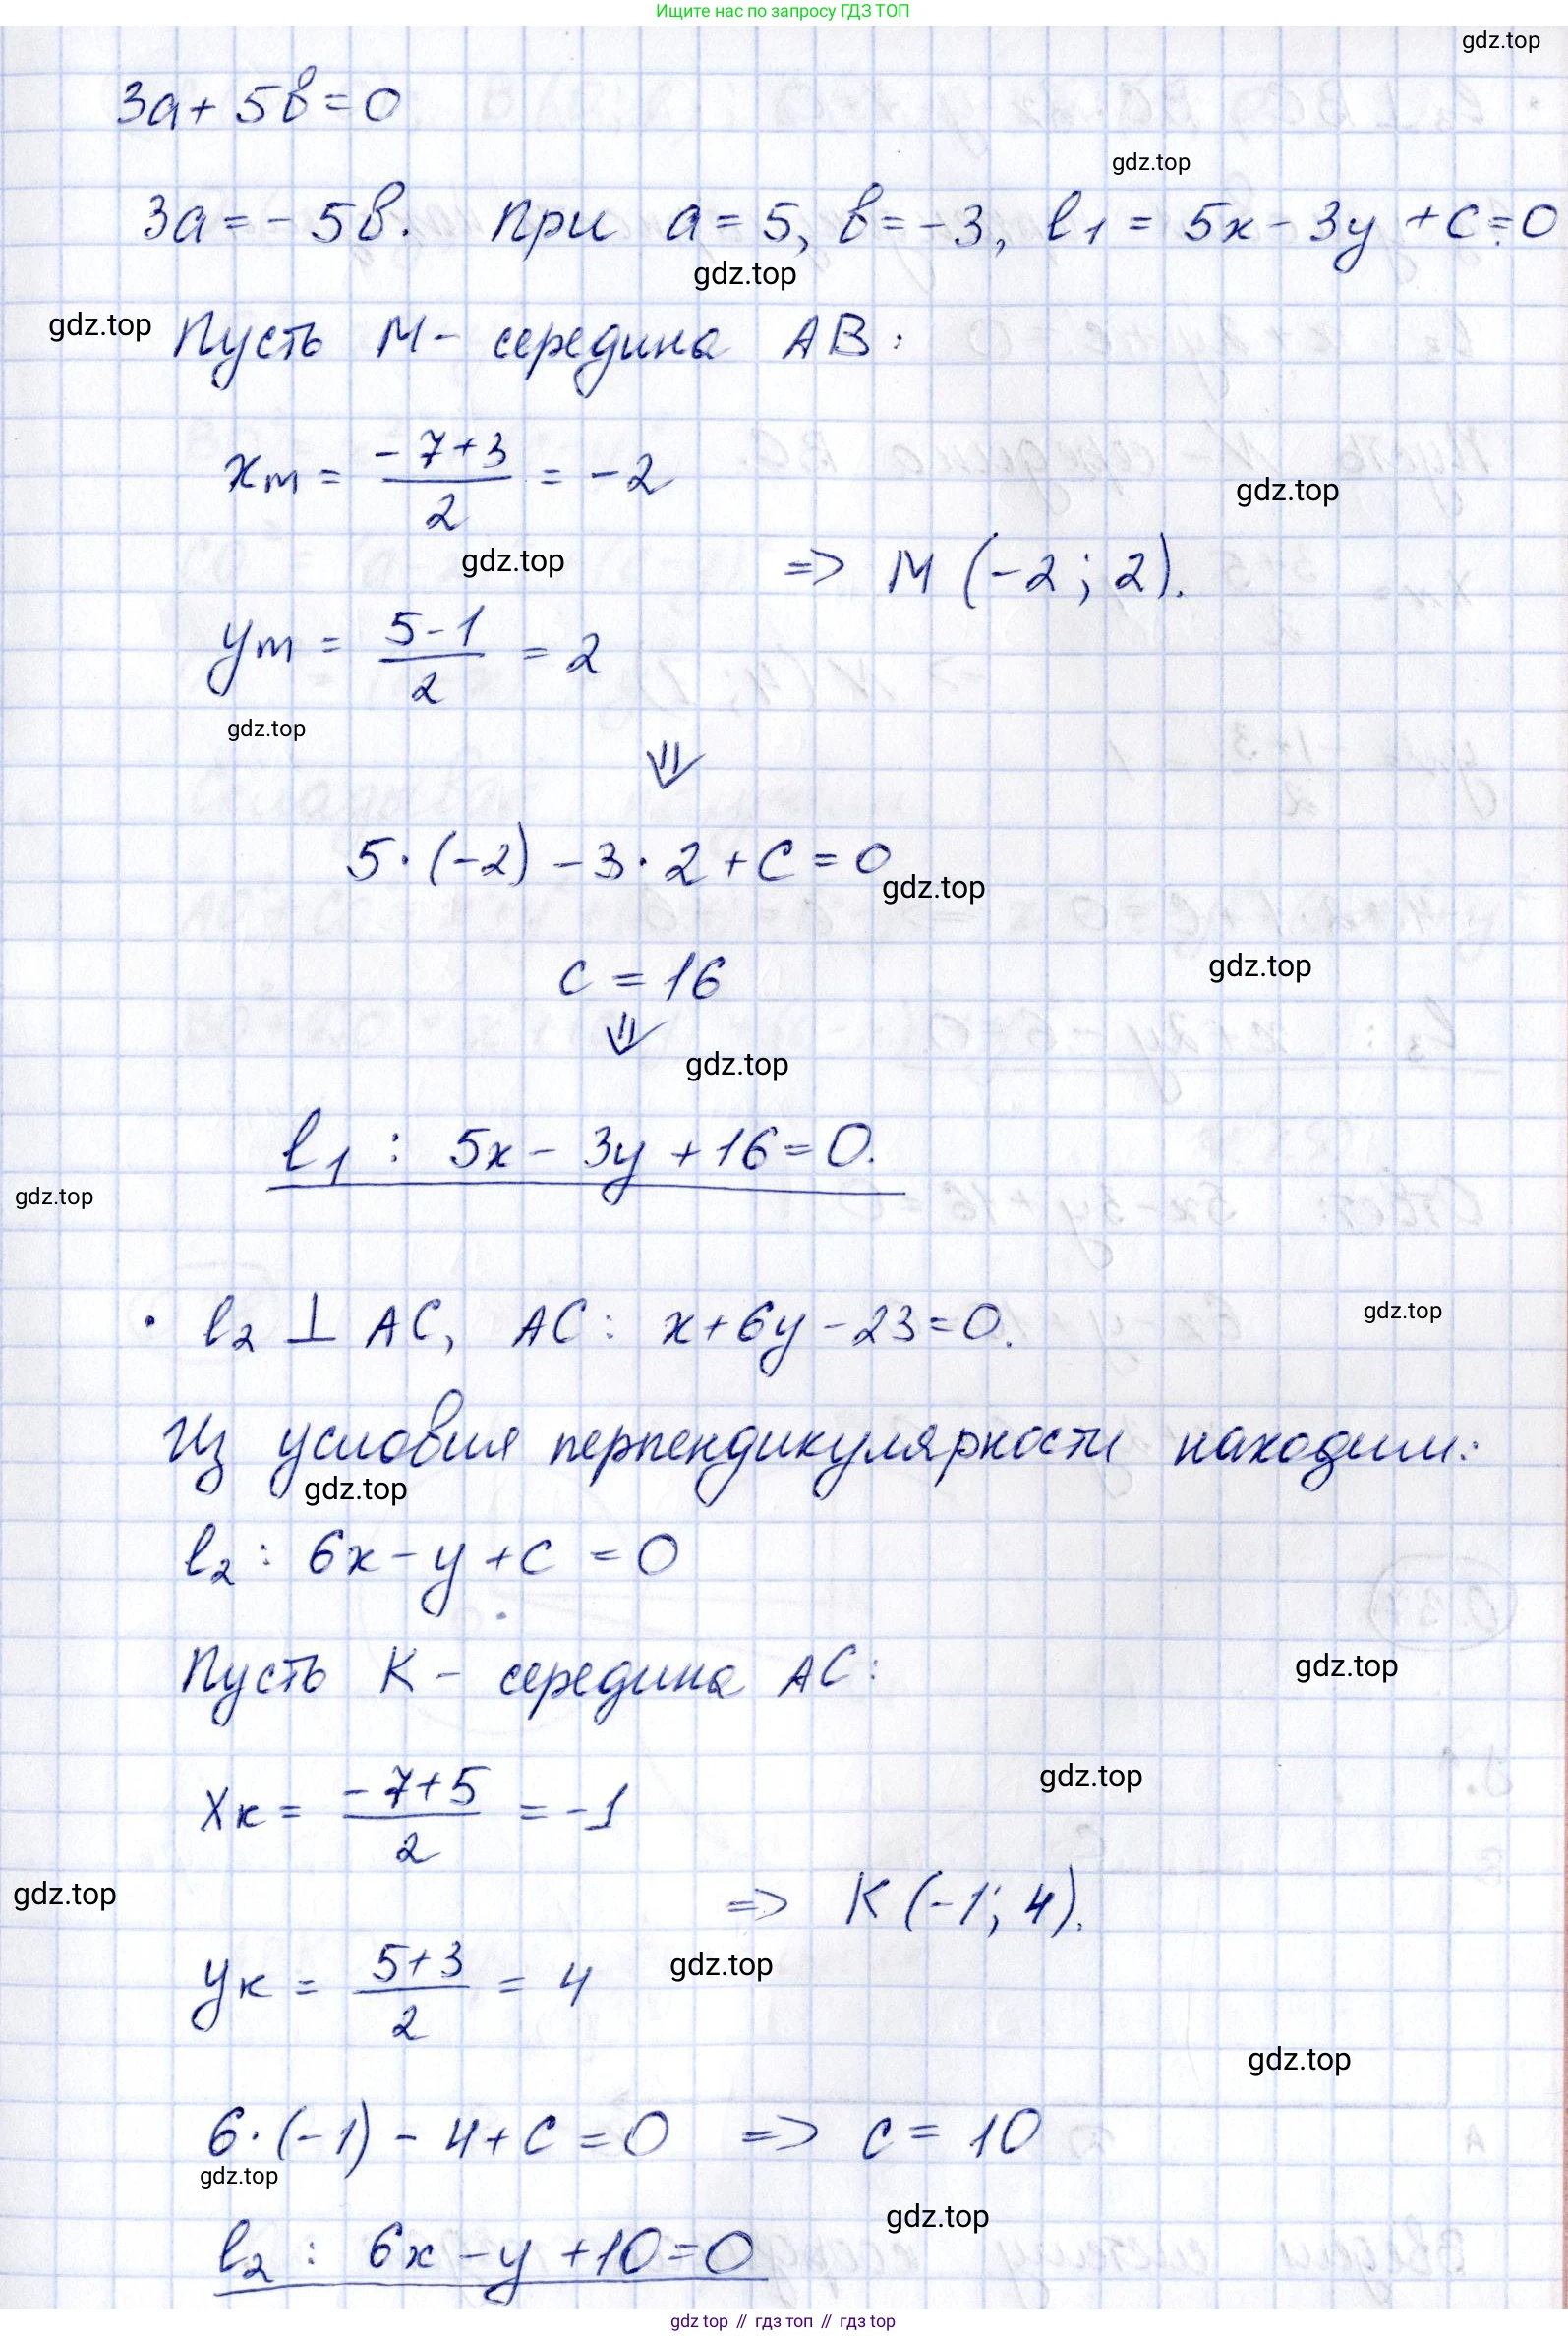 Ищите нас по запросу ГДЗ ТОП
gdz.top
3a + 5b = 0
gdz.top
3a = - 5b. При a = 5, b = -3, l₁ = 5x - 3y + c = 0
gdz.top
gdz.top
Пусть M - середина AB:
xₘ = (-7+3)/2 = -2
gdz.top
gdz.top
=> M (-2; 2).
yₘ = (5-1)/2 = 2
gdz.top
⇓
5·(-2) - 3·2 + c = 0
gdz.top
c = 16
gdz.top
⇓
gdz.top
l₁ : 5x - 3y + 16 = 0.
gdz.top
· l₂ ⊥ AC, AC: x + 6y - 23 = 0.
gdz.top
Из условия перпендикулярности находим:
gdz.top
l₂ : 6x - y + c = 0
Пусть K - середина AC:
gdz.top
xₖ = (-7+5)/2 = -1
gdz.top
gdz.top
=> K (-1; 4).
yₖ = (5+3)/2 = 4
gdz.top
gdz.top
6·(-1) - 4 + c = 0 => c = 10
gdz.top
gdz.top
l₂ : 6x - y + 10 = 0
gdz top // гдз топ // гдз top